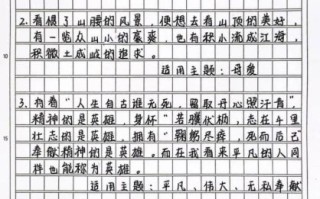 2.看惯了山腰的风景，便想去看山顶的美好，
有一览众山小的豪爽，也有积小流成江海，
积微土成岐的追求。
适用主题：母度
10
3.有着“人生自古谁无死，留取丹心照汗青”
精神的是英雄，身怀“若骥伏枥，志在千里
壮志的是英雄，拥有“鞠躬尽瘁，死而后己
奉献精神的是英雄。而在我看来平凡的人同
样也能称为英雄。
15
适用主题：平凡、伟大、无私奉献